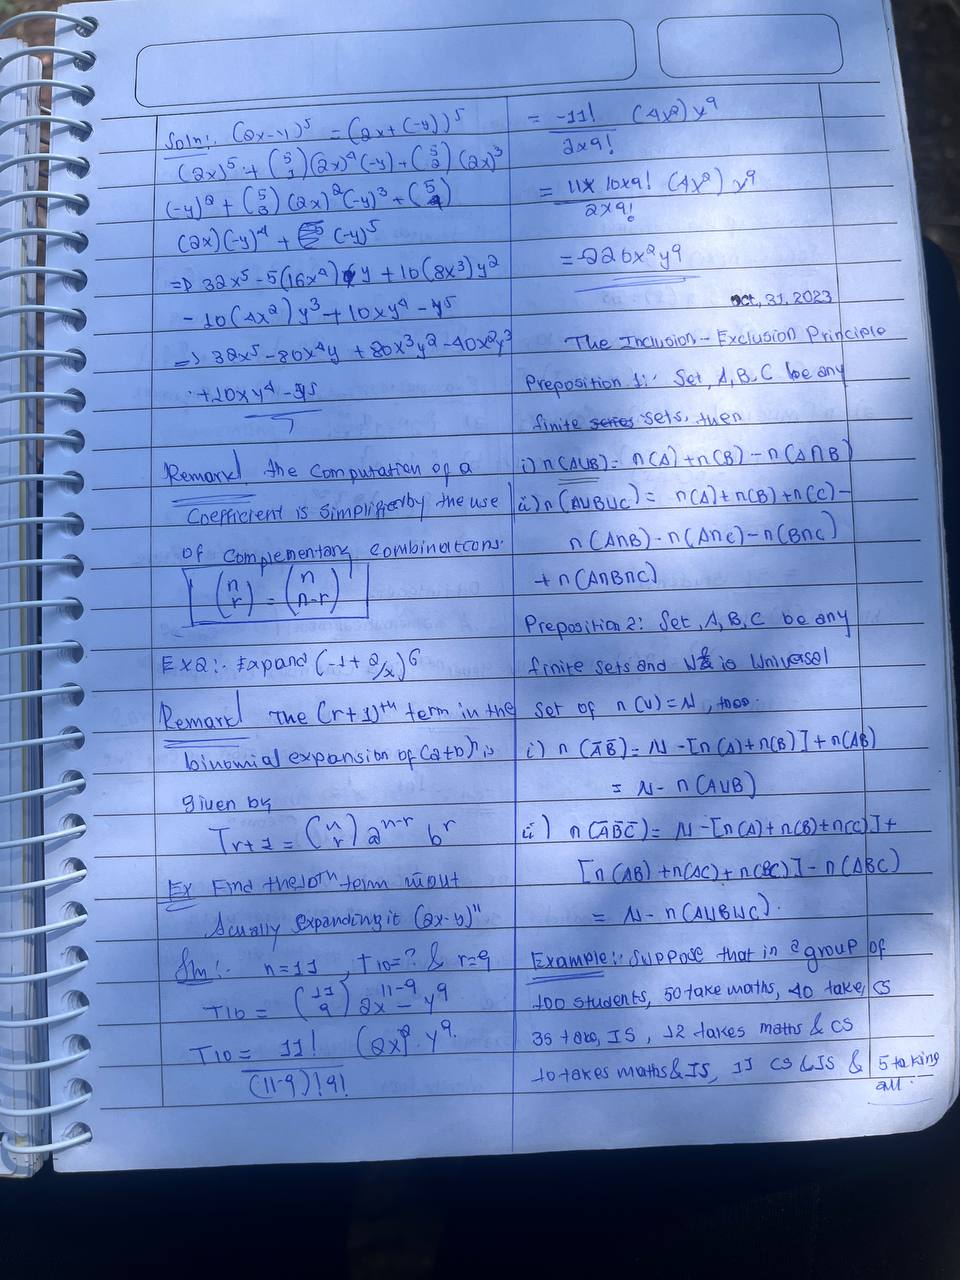 Soln:. (2x-y)^5 = (2x+(-y))^5
(2x)^5 + (5 1)(2x)^4(-y) + (5 2)(2x)^3
(-y)^2 + (5 3)(2x)^2(-y)^3 + (5 4)
(2x)(-y)^4 + (-y)^5
=> 32x^5 - 5(16x^4)y + 10(8x^3)y^2
- 10(4x^2)y^3 + 10xy^4 - y^5
=> 32x^5 - 80x^4y + 80x^3y^2 - 40x^2y^3
+10xy^4 - y^5
Remark! the computation of a
Coefficient is simplified by the use
of complementary combinations.
(n r) = (n n-r)
Ex2:. Expand (-1+2/x)^6
Remark! The (r+1)^th term in the
binomial expansion of (a+b)^n is
given by
Tr+1 = (n r) a^n-r b^r
Ex Find the 10th term without
Acually expanding it (2x-y)^11
Sln:. n=11, T10=? & r=9
T10 = (11 9) 2x^11-9 - y^9
T10 = 11! / (11-9)!9! (2x)^2 . y^9.
= -11! / 2x9! (4x^2) y^9
= 11x10x9! (4x^2) y^9 / 2x9!
= -220x^2y^9
Oct, 31, 2023
The Inclusion - Exclusion Principle
Preposition 1:. Set, A, B, C be any
finite series sets, then
i) n(AUB) = n(A)+n(B)-n(A∩B)
ii) n(AUBUC) = n(A)+n(B)+n(C)-
n(A∩B)-n(A∩C)-n(B∩C)
+n(A∩B∩C)
Preposition 2: Set, A, B, C be any
finite sets and is Universal
set of n(U)=N,
i) n(A̅B̅) = N -[n(A)+n(B)]+n(AB)
= N- n(AUB)
ii) n(A̅B̅C̅) = N -[n(A)+n(B)+n(C)]+
[n(AB)+n(AC)+n(BC)]-n(ABC)
= N- n(AUBUC).
Example:. Suppose that in a group of
100 students, 50 take maths, 40 take, CS
35 take, IS, 12 takes maths & CS
10 takes maths & IS, 11 CS & IS & 5 taking
all.